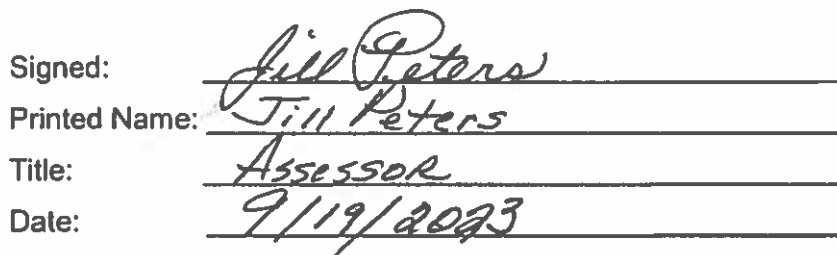 Signed: Jill Peters
Printed Name: Jill Peters
Title: Assessor
Date: 9/19/2023